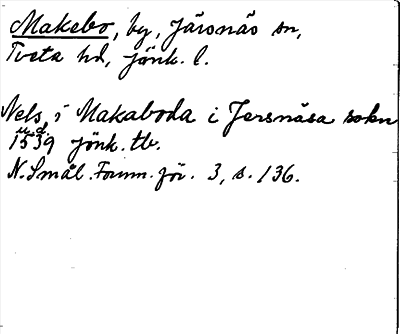 Makebo, by, Järsnäs sn,
Tveta hd, Jönk. l.
Nels i Makaboda i Jersnäsa sokn
u.å.
1539 Jönk. tb.
N. Smål. Fornm. för. 3, s. 136.